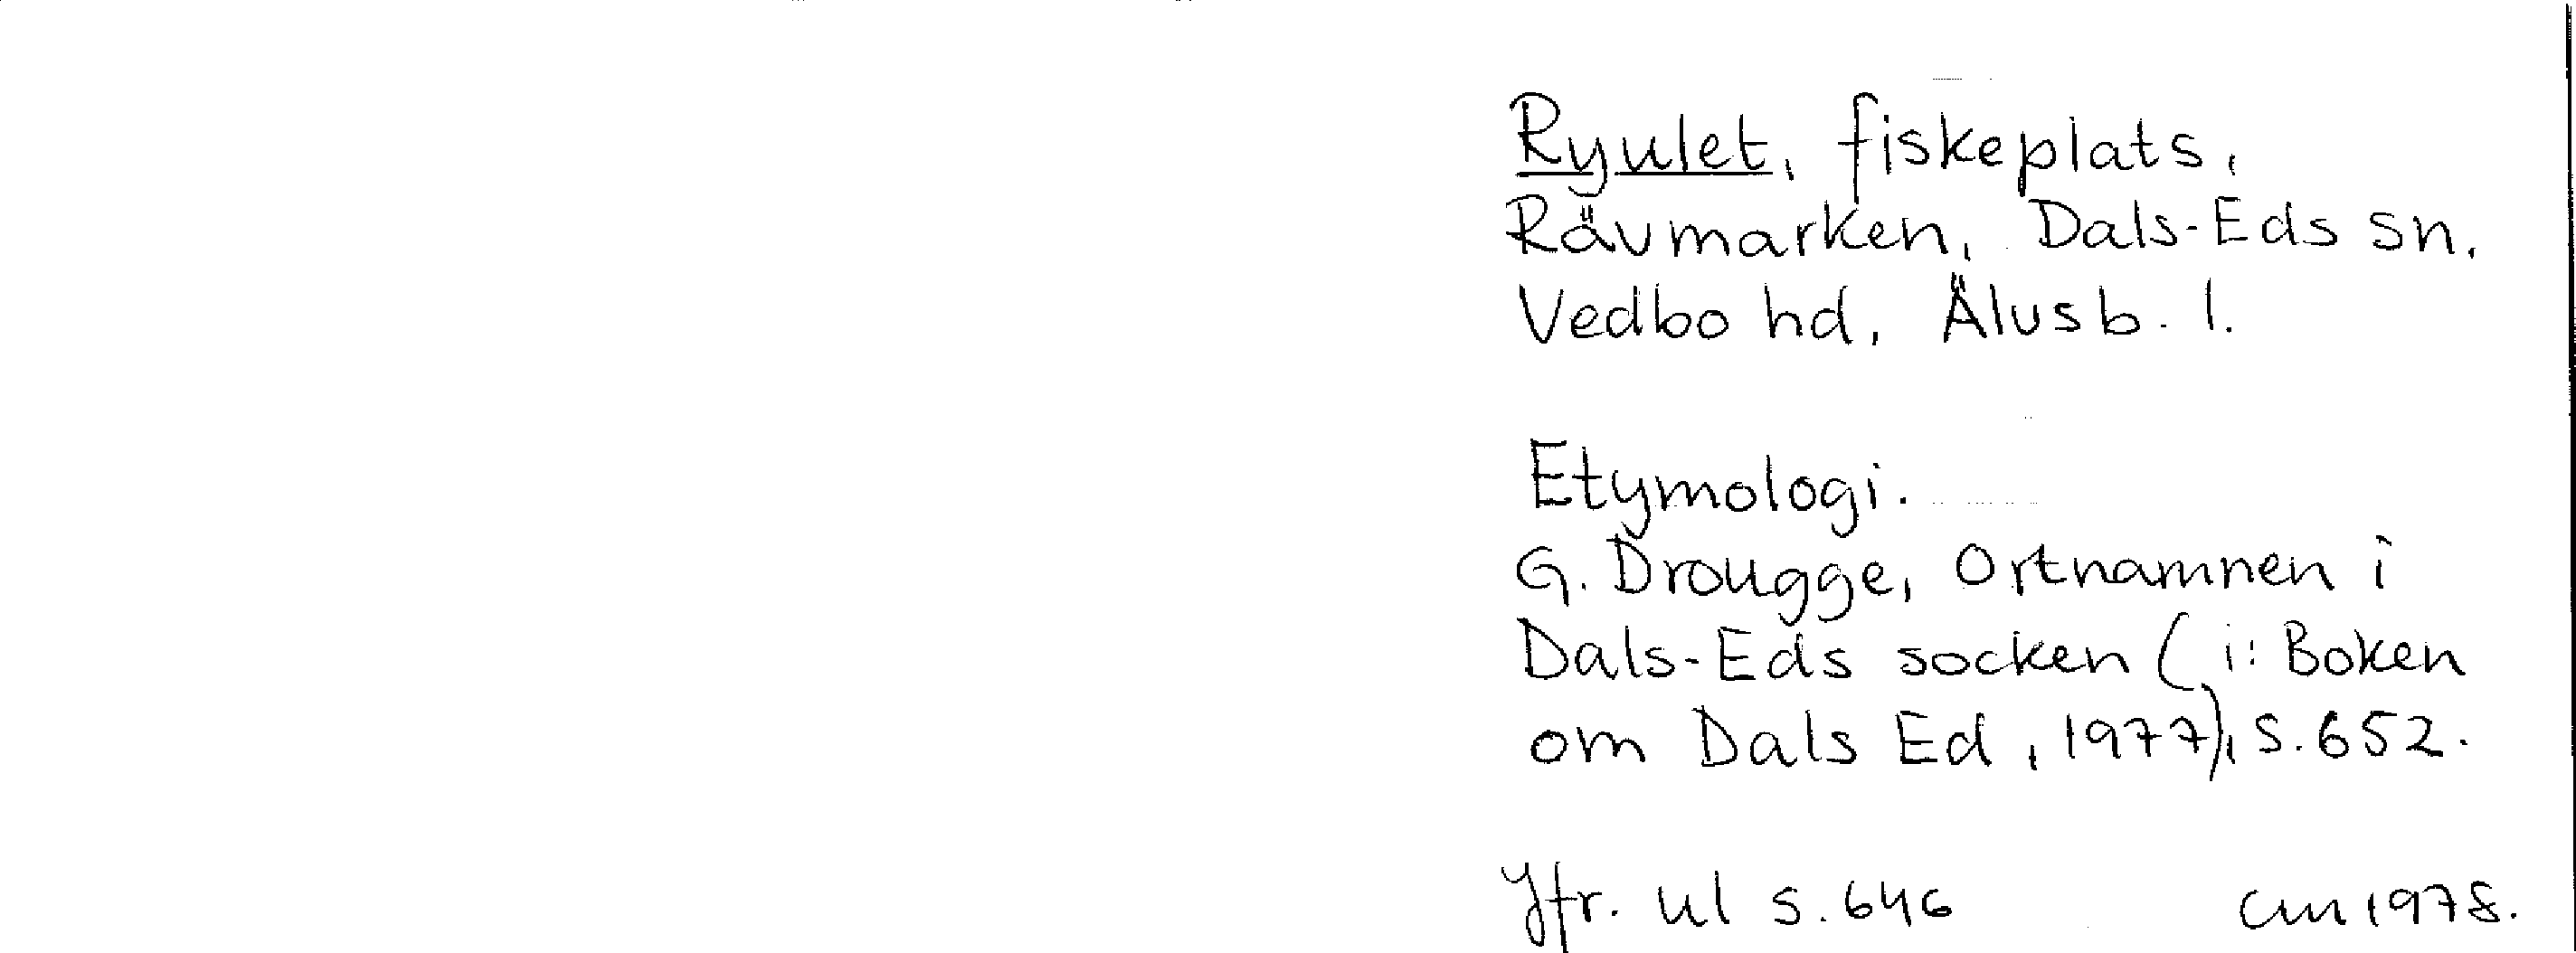 Ryulet, fiskeplats,
Rävmarken, Dals-Eds sn,
Vedbo hd, Älvsb. l.
Etymologi.
G. Drougge, Ortnamnen i
Dals-Eds socken (i: Boken
om Dals Ed, 1977), s. 652.
Jfr. ul s. 646 cm 1978.